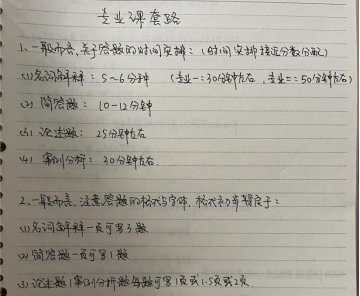 专业课套路
1、一般而言,关于答题的时间安排:(时间安排接近分数分配)
(1)名词解释:5~6分钟 (专业一:30分钟左右,专业二:50分钟左右)
(2)简答题:10-12分钟
(3)论述题:25分钟左右
(4)案例分析:30分钟左右.
2、一般而言,注意答题的格式与字体,格式
(1)名词解释一页可写3题
(2)简答题一页可写1题
(3)论述题/案例分析题每题可写1页或1.5页或2页.